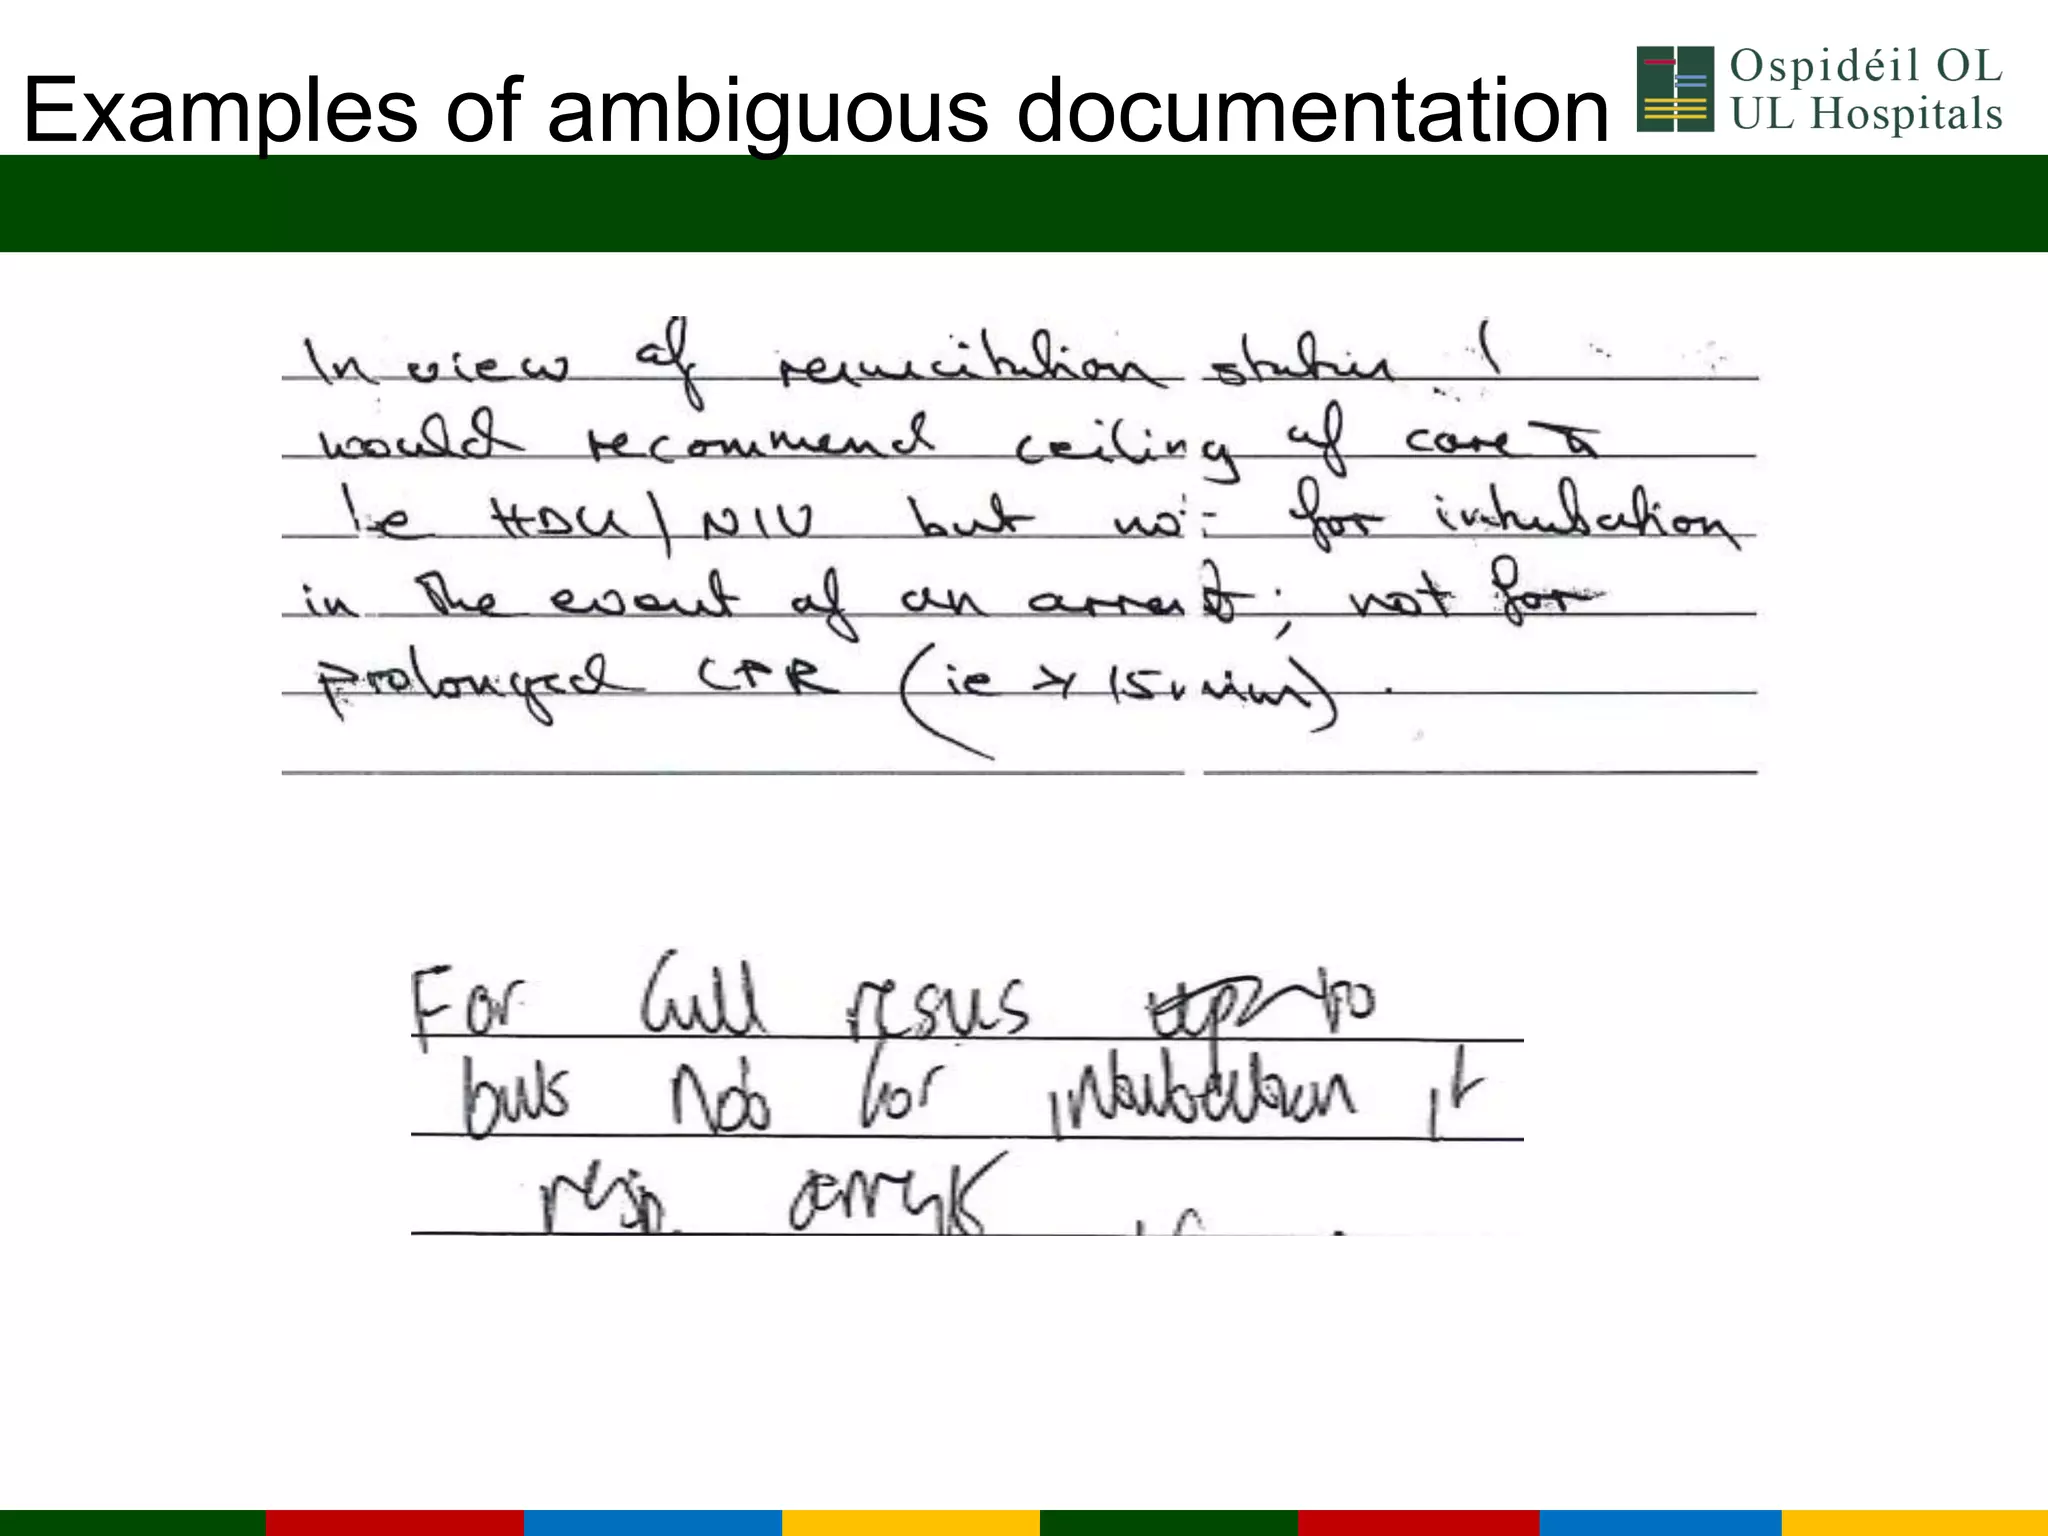 Examples of ambiguous documentation
Ospidéil OL
UL Hospitals
In view of resuscitation status I
would recommend ceiling of care to
be HDU / NIV but not for intubation
in the event of an arrest; not for
prolonged CPR (ie > 15 mins).
For full resus
but not for intubation if
resp. arrest